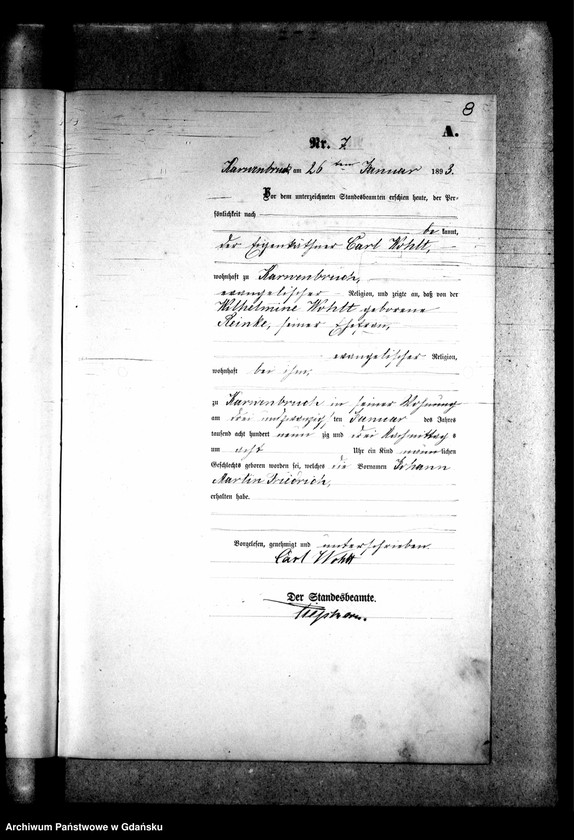 8
A.
Nr. 7
Karwenbruch am 26 ten Januar 1893.
Vor dem unterzeichneten Standesbeamten erschien heute, der Per-
sönlichkeit nach
be kannt,
der Eigenkäthner Carl Wohlt,
wohnhaft zu Karwenbruch,
evangelischer Religion, und zeigte an, daß von der
Wilhelmine Wohlt geborene
Reinke, seiner Ehefrau,
evangelischer Religion,
wohnhaft bei ihm,
zu Karwenbruch in seiner Wohnung
am drei und zwanzig ten Januar des Jahres
tausend acht hundert neun zig und drei Nachmittags
um acht Uhr ein Kind männ lichen
Geschlechts geboren worden sei, welches die Vornamen Johann
Martin Friedrich,
erhalten habe.
Vorgelesen, genehmigt und unterschrieben.
Carl Wohlt
Der Standesbeamte.
Archiwum Państwowe w Gdańsku